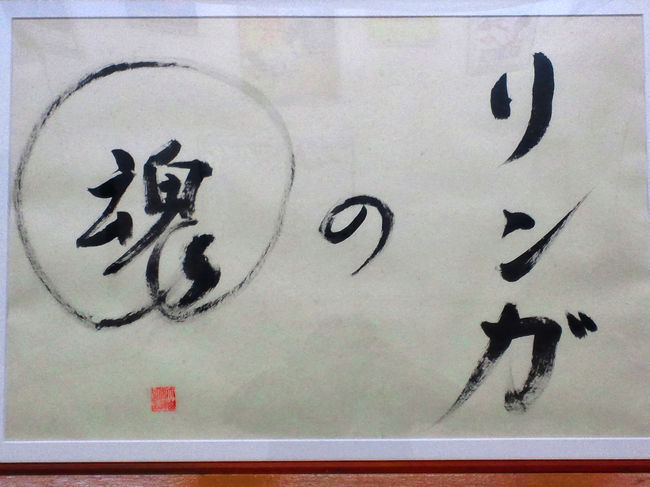 リンガ
の
魂